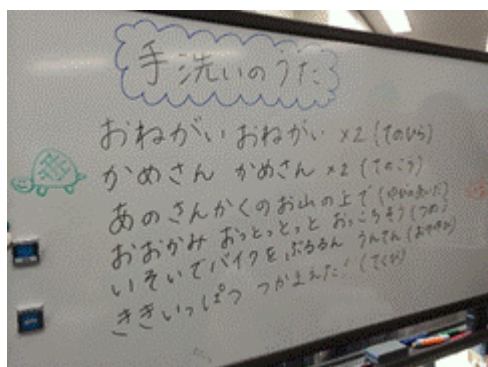 手洗いのうた
おねがい おねがい ×2 (てのひら)
かめさん かめさん ×2 (てのこう)
あのさんかくのお山の上で (ゆびのあいだ)
おおかみ おっとっとっと おっこちそう (つめ)
いそいでバイクを ぶるるん うんてん (おやゆび)
ききいっぱつ つかまえた! (てくび)